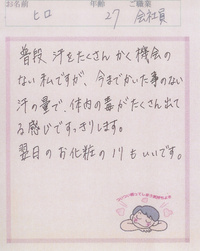 お名前 年齢 ご職業
ヒロ 27 会社員
普段 汗をたくさん かく機会の
ない私ですが、今までかいた事のない
汗の量で、体内の毒がたくさん出て
る感じですっきりします。
翌日のお化粧のノリもいいです。